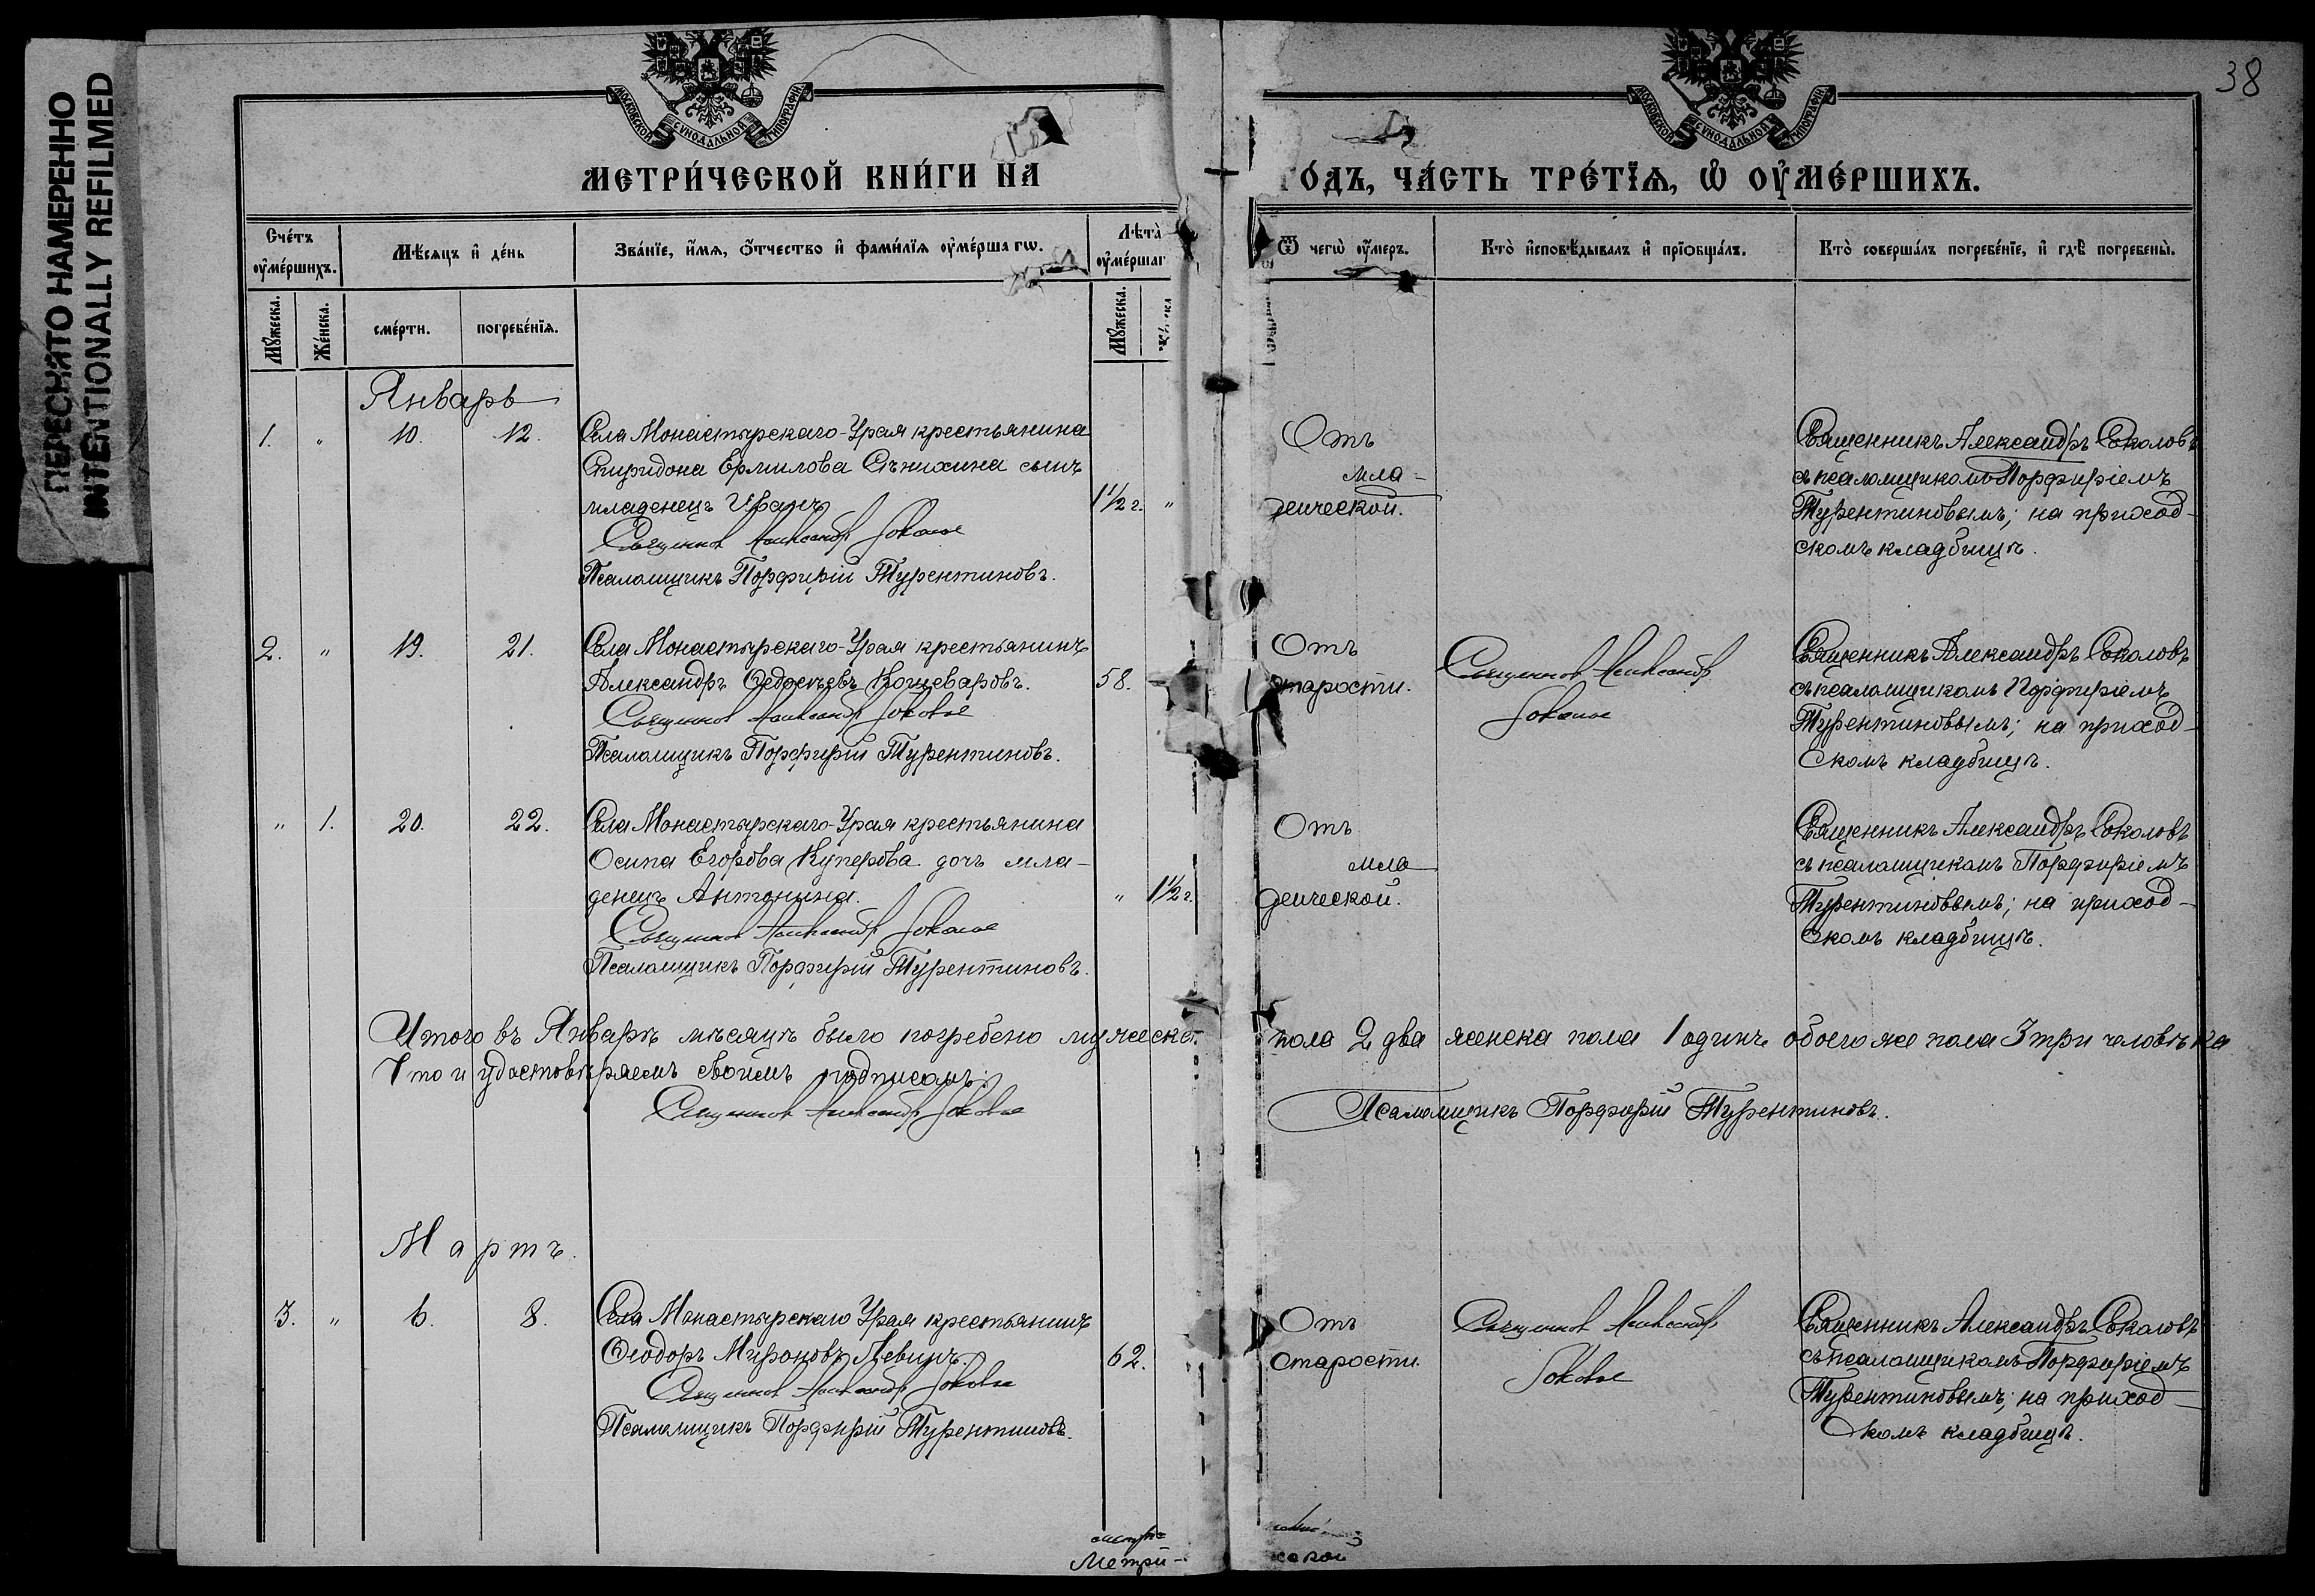 ПЕРЕСНЯТО НАМЕРЕННО
INTENTIONALLY REFILMED
38
МОСКОВСКОЙ СѴНОДАЛЬНОЙ ТИПОГРАФІИ
МОСКОВСКОЙ СѴНОДАЛЬНОЙ ТИПОГРАФІИ
МЕТРИ́ЧЕСКОЙ КНИ́ГИ НА
ГО́ДЪ, ЧА́СТЬ ТРЕ́ТЇѦ, Ѡ҆ ОУ҆МЕ́РШИХЪ.
Сче́тъ оу҆ме́ршихъ.
Мѣ́сѧцъ и҆ де́нь
Зва́нїе, и҆́мѧ, ѻ҆́тчество и҆ фами́лїѧ оу҆ме́ршагѡ.
Лѣ́та оу҆ме́ршаг
Ѿ чегѡ̀ оу҆́меръ.
Кто̀ и҆сповѣ́дывалъ и҆ прїѻбща́лъ.
Кто̀ соверша́лъ погребе́нїе, и҆ гдѣ̀ погребены̀.
Мꙋ́жеска.
Же́нска.
сме́рти.
погребе́нїѧ.
Мꙋ́жеска.
Январь
1. " 10. 12. Села Монастырскаго-Урая крестьянина
Спиридона Ермилова Сѣнихина сынъ
младенецъ Иванъ 1 1/2 г. "
Священникъ Александръ Соколовъ
Псаломщикъ Порфирій Турентиновъ.
Отъ
мла-
денческой.
Священникъ Александръ Соколовъ
съ псаломщикомъ Порфиріемъ
Турентиновымъ; на приход-
скомъ кладбищѣ.
2. " 19. 21. Села Монастырскаго-Урая крестьянинъ
Александръ Ѳедосѣевъ Кочеваровъ. 58.
Священникъ Александръ Соколовъ
Псаломщикъ Порфирій Турентиновъ.
Отъ
старости.
Священникъ Александръ
Соколовъ
Священникъ Александръ Соколовъ
съ псаломщикомъ Порфиріемъ
Турентиновымъ; на приход-
скомъ кладбищѣ.
" 1. 20. 22. Села Монастырскаго-Урая крестьянина
Осипа Егорова Куперова дочь мла-
денецъ Антонина. " 1 1/2 г.
Священникъ Александръ Соколовъ
Псаломщикъ Порфирій Турентиновъ.
Отъ
мла
денческой.
Священникъ Александръ Соколовъ
съ псаломщикомъ Порфиріемъ
Турентиновымъ; на приход-
скомъ кладбищѣ.
Итого въ Январѣ мѣсяцѣ было погребено мужеска пола 2 два женска пола 1 одинъ обоего же пола 3 три человѣка
Что и удостовѣряемъ своимъ подписомъ:
Священникъ Александръ Соколовъ
Псаломщикъ Порфирій Турентиновъ.
Мартъ.
3. " 6. 8. Села Монастырскаго Урая крестьянинъ
Ѳеодоръ Мироновъ Левинъ. 62.
Священникъ Александръ Соколовъ
Псаломщикъ Порфирій Турентиновъ.
Отъ
старости.
Священникъ Александръ
Соколовъ
Священникъ Александръ Соколовъ
съ псаломщикомъ Порфиріемъ
Турентиновымъ; на приход-
скомъ кладбищѣ.
Метри-